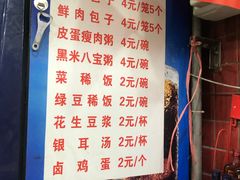 包子 4元/笼5个
鲜肉包子 4元/笼5个
皮蛋瘦肉粥 4元/碗
黑米八宝粥 4元/碗
菜稀饭 2元/碗
绿豆稀饭 2元/碗
花生豆浆 2元/杯
银耳汤 2元/杯
卤鸡蛋 2元/个